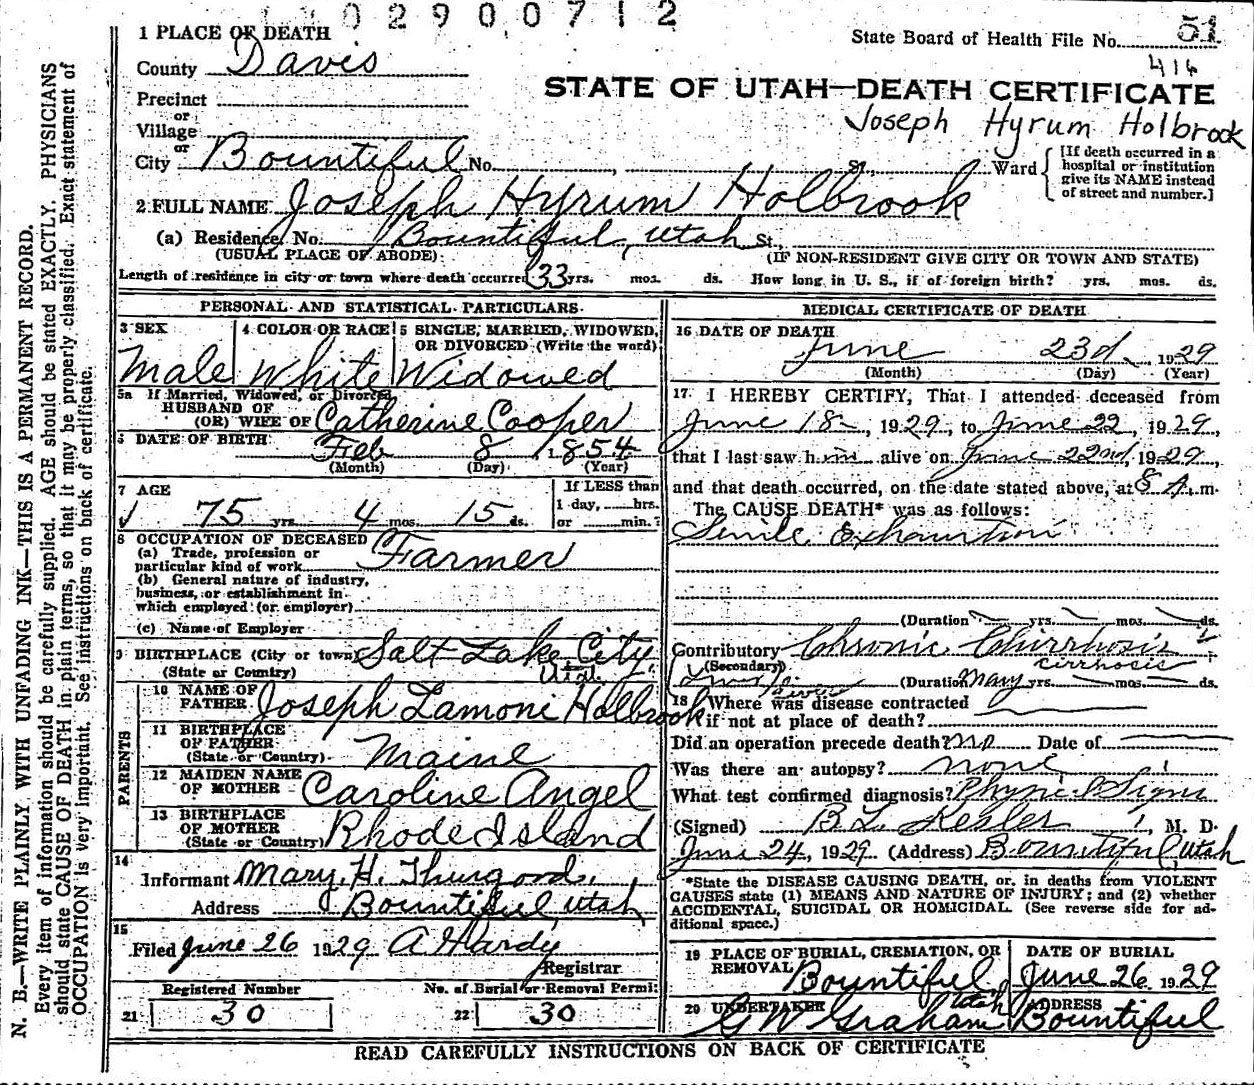 1 0 2 9 0 0 7 1 2
1 PLACE OF DEATH
State Board of Health File No. 51
416
County Davis
STATE OF UTAH—DEATH CERTIFICATE
Joseph Hyrum Holbrook
Precinct
or
Village
or
City Bountiful No. St., Ward
[If death occurred in a
hospital or institution
give its NAME instead
of street and number.]
2 FULL NAME Joseph Hyrum Holbrook
(a) Residence, No. Bountiful, Utah St.,
(USUAL PLACE OF ABODE) (IF NON-RESIDENT GIVE CITY OR TOWN AND STATE)
Length of residence in city or town where death occurred 33 yrs. mos. ds. How long in U. S., if of foreign birth? yrs. mos. ds.
PERSONAL AND STATISTICAL PARTICULARS
3 SEX 4 COLOR OR RACE 5 SINGLE, MARRIED, WIDOWED,
OR DIVORCED (Write the word)
Male White Widowed
5a If Married, Widowed, or Divorced
HUSBAND OF
(OR) WIFE OF Catherine Cooper
6 DATE OF BIRTH Feb 8 1854
(Month) (Day) (Year)
7 AGE If LESS than
1 day, hrs.
75 yrs. 4 mos. 15 ds. or min.?
8 OCCUPATION OF DECEASED
(a) Trade, profession or
particular kind of work Farmer
(b) General nature of industry,
business, or establishment in
which employed (or employer)
(c) Name of Employer
9 BIRTHPLACE (City or town) Salt Lake City
(State or Country) Utah
PARENTS
10 NAME OF
FATHER Joseph Lamoni Holbrook
11 BIRTHPLACE
OF FATHER
(State or Country) Maine
12 MAIDEN NAME
OF MOTHER Caroline Angel
13 BIRTHPLACE
OF MOTHER
(State or Country) Rhode Island
14
Informant Mary H. Thurgood
Address Bountiful, Utah
15
Filed June 26 1929 A Hardy
Registrar
Registered Number No. of Burial or Removal Permit
21 30 22 30
MEDICAL CERTIFICATE OF DEATH
16 DATE OF DEATH
June 23d 1929
(Month) (Day) (Year)
17 I HEREBY CERTIFY, That I attended deceased from
June 18, 1929, to June 22, 1929,
that I last saw him alive on June 22nd, 1929,
and that death occurred, on the date stated above, at 8 A. m.
The CAUSE DEATH* was as follows:
Senile Exhaustion
(Duration yrs. mos. ds.
Contributory Chronic Chirrhosis
(Secondary) cirrhosis
Liver (Duration Many yrs. mos. ds.
18 Where was disease contracted
if not at place of death?
Did an operation precede death? no Date of
Was there an autopsy? none
What test confirmed diagnosis? Physical Signs
(Signed) B L Kesler, M. D.
June 24, 1929 (Address) Bountiful, Utah
*State the DISEASE CAUSING DEATH, or, in deaths from VIOLENT
CAUSES state (1) MEANS AND NATURE OF INJURY; and (2) whether
ACCIDENTAL, SUICIDAL OR HOMICIDAL. (See reverse side for ad-
ditional space.)
19 PLACE OF BURIAL, CREMATION, OR
REMOVAL Bountiful Utah
DATE OF BURIAL
June 26 1929
20 UNDERTAKER
G W Graham
ADDRESS
Bountiful
READ CAREFULLY INSTRUCTIONS ON BACK OF CERTIFICATE
N. B.—WRITE PLAINLY WITH UNFADING INK—THIS IS A PERMANENT RECORD.
Every item of information should be carefully supplied. AGE should be stated EXACTLY. PHYSICIANS
should state CAUSE OF DEATH in plain terms, so that it may be properly classified. Exact statement of
OCCUPATION is very important. See instructions on back of certificate.